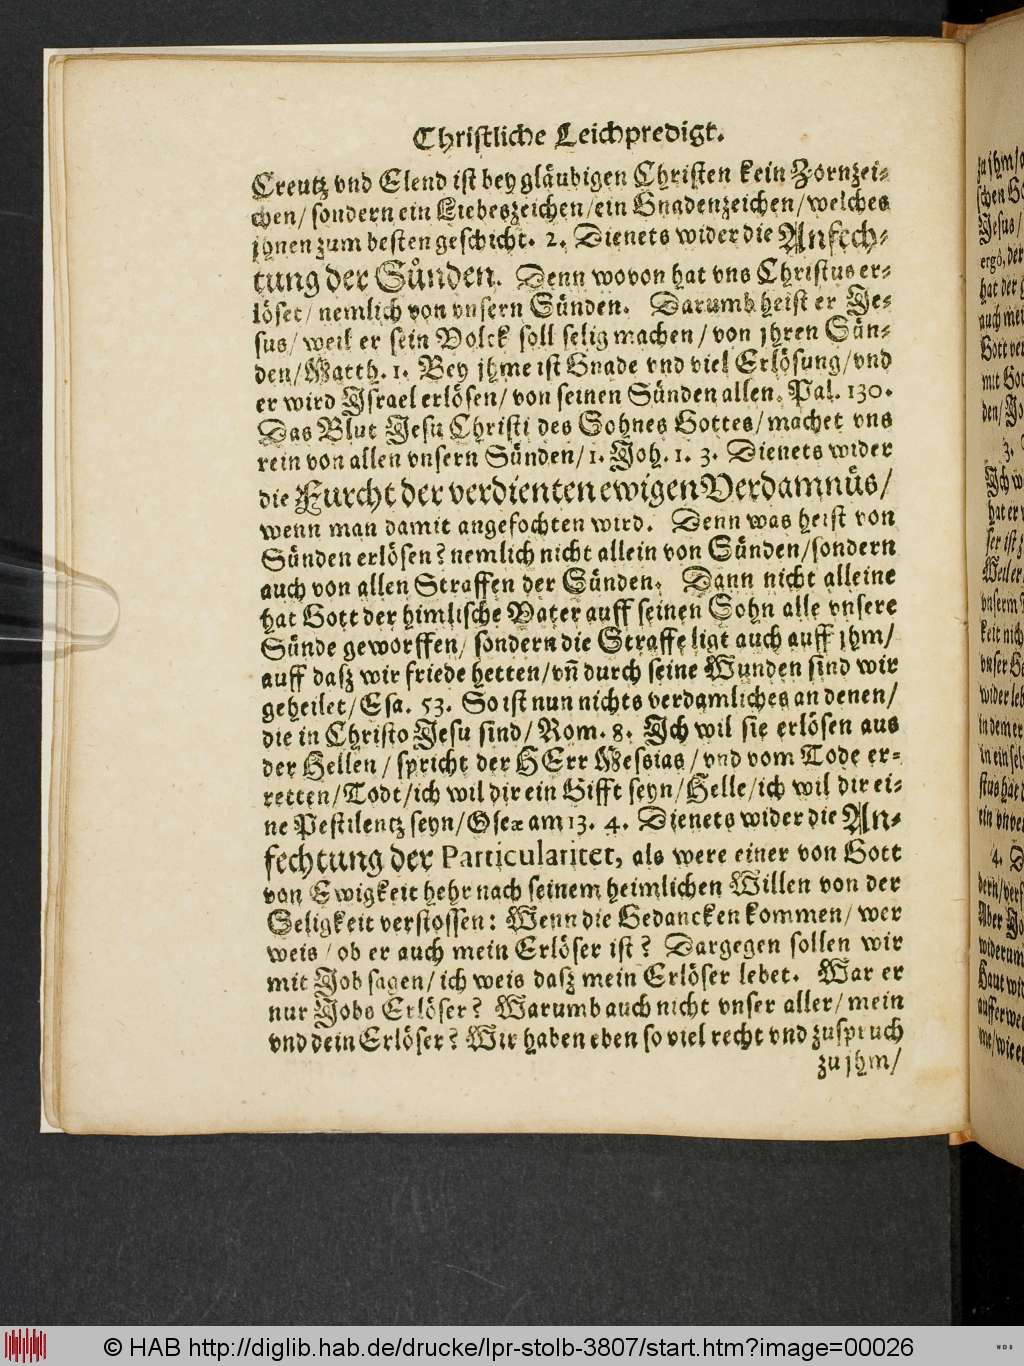 Christliche Leichpredigt.
Creutz vnd Elend ist bey gläubigen Christen kein Zornzei-
chen/ sondern ein Liebeszeichen/ ein Gnadenzeichen/ welches
jhnen zum besten geschicht. 2. Dienets wider die Anfech-
tung der Sünden. Denn wovon hat vns Christus er-
löset/ nemlich von vnsern Sünden. Darumb heist er Je-
sus/ weil er sein Volck soll selig machen/ von jhren Sün-
den/ Matth. 1. Bey jhme ist Gnade vnd viel Erlösung/ vnd
er wird Jsrael erlösen/ von seinen Sünden allen. Psal. 130.
Das Blut Jesu Christi des Sohnes Gottes/ machet vns
rein von allen vnsern Sünden/ 1. Joh. 1. 3. Dienets wider
die Furcht der verdienten ewigen Verdamnüs/
wenn man damit angefochten wird. Denn was heist von
Sünden erlösen? nemlich nicht allein von Sünden/ sondern
auch von allen Straffen der Sünden. Dann nicht alleine
hat Gott der himlische Vater auff seinen Sohn alle vnsere
Sünde geworffen/ sondern die Straffe ligt auch auff jhm/
auff daß wir friede hetten/ vñ durch seine Wunden sind wir
geheilet/ Esa. 53. So ist nun nichts verdamliches an denen/
die in Christo Jesu sind/ Rom. 8. Jch wil sie erlösen aus
der Hellen/ spricht der HErr Messias/ vnd vom Tode er-
retten/ Todt/ ich wil dir ein Gifft seyn/ Helle/ ich wil dir ei-
ne Pestilentz seyn/ Oseæ am 13. 4. Dienets wider die An-
fechtung der Particularitet, als were einer von Gott
von Ewigkeit hehr nach seinem heimlichen Willen von der
Seligkeit verstossen: Wenn die Gedancken kommen/ wer
weis/ ob er auch mein Erlöser ist? Dargegen sollen wir
mit Job sagen/ ich weis daß mein Erlöser lebet. War er
nur Jobs Erlöser? Warumb auch nicht vnser aller/ mein
vnd dein Erlöser? Wir haben eben so viel recht vnd zuspruch
zu jhm/
© HAB http://diglib.hab.de/drucke/lpr-stolb-3807/start.htm?image=00026